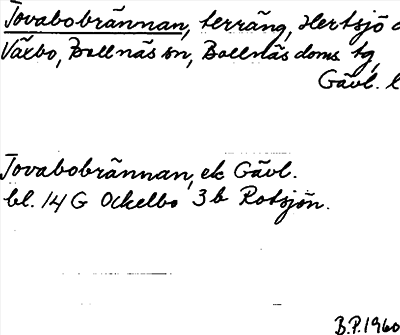 Tovabobrännan, terräng, Hertsjö o
Växbo, Bollnäs sn, Bollnäs doms tg,
Gävl. l
Tovabobrännan, ek Gävl.
bl. 14 G Ockelbo 3b Rotsjön.
B.P. 1960